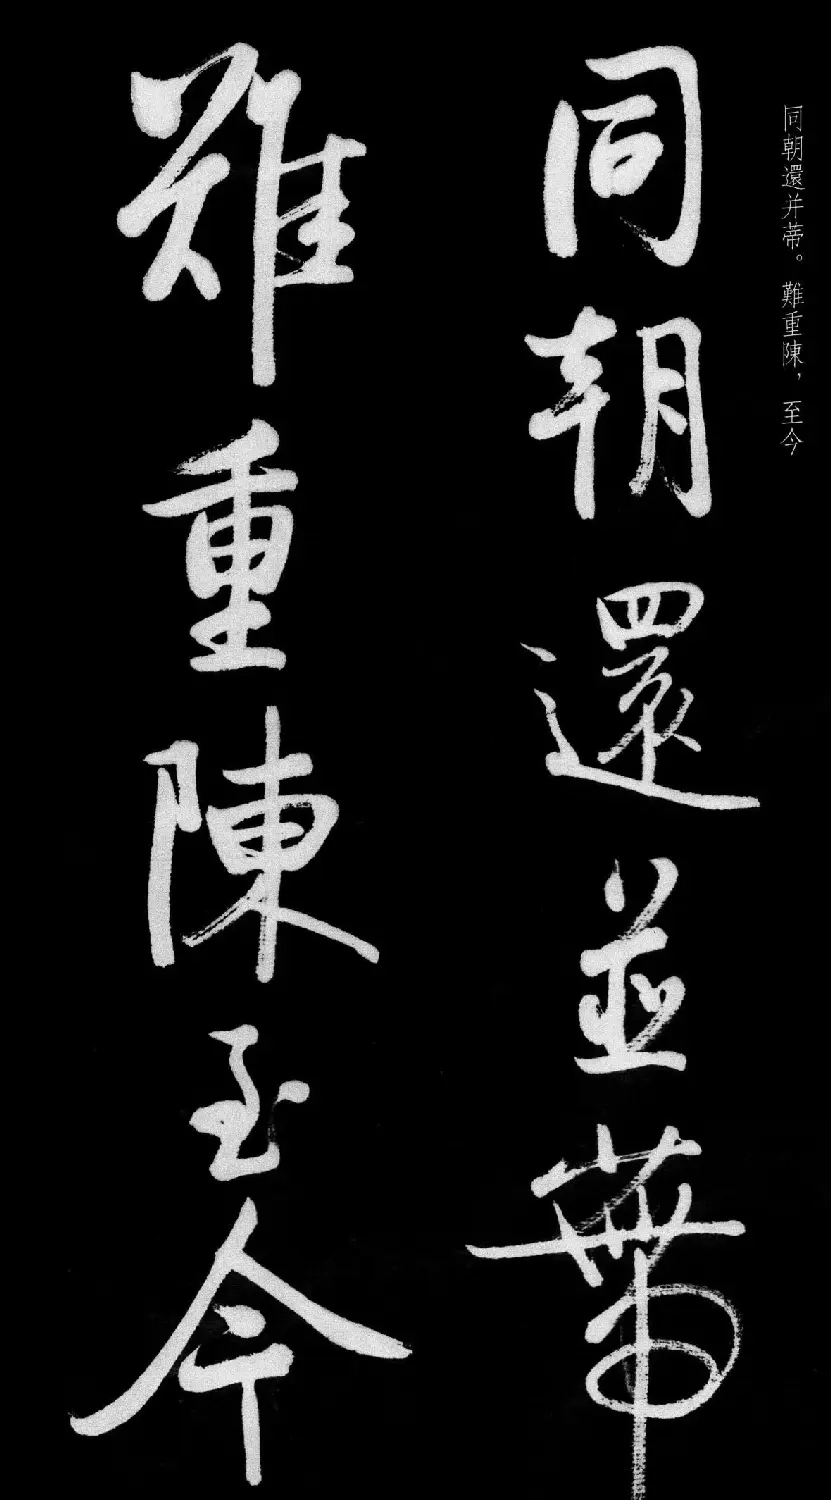 同朝還并蒂。難重陳，至今
同朝還並蔕
難重陳至今